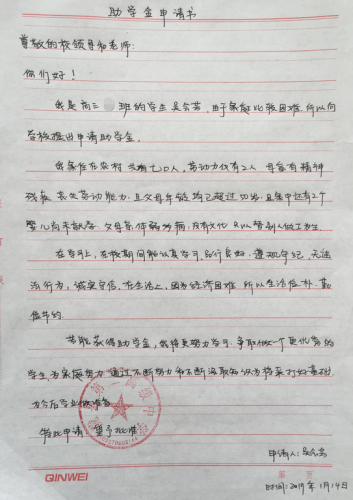 助学金申请书
尊敬的校领导和老师:
你们好!
我是高三 班的学生吴 芳,由于家庭比较困难,所以向
学校提出申请助学金。
我家住在农村 共有七口人,劳动力仅有2人 母亲有精神
残疾 丧失劳动能力 且父母年龄均已超过50岁 且集中还有2个
婴儿尚未就学 父母亲体弱多病,没有文化 只以替别人做工为生。
在学习上,在校期间能认真学习 品行良好 遵规守纪,无违
法行为,诚实守信,在生活上,因为经济困难 所以生活俭朴 勤
俭节约.
若能获得助学金,我将更努力学习 争取做一个更优秀的
学生,为家庭努力 通过不断努力和不断汲取知识为将来打好基础
为今后学业做准备
特此申请 望予批准
申请人: 吴 芳
第 页
QINWEI
时间:2019年1月14日